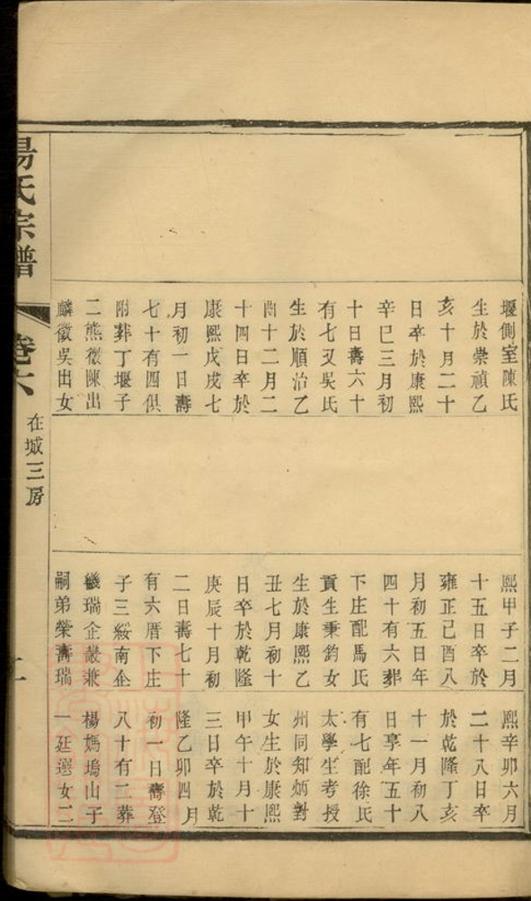 堰側室陳氏
生於崇禎乙
亥十月二十
日卒於康熙
辛巳三月初
十日壽六十
有七又吳氏
生於順治乙
酉十二月二
十四日卒於
康熙戊戌七
月初一日壽
七十有四俱
附葬丁堰子
二熊徵陳出
麟徵吳出女
熙甲子二月
十五日卒於
雍正己酉八
月初五日年
四十有六葬
下庄配馬氏
貢生秉鈞女
生於康熙乙
丑七月初十
日卒於乾隆
庚辰十月初
二日壽七十
有六厝下庄
子三綏南企
巖瑞企叢兼
嗣弟榮壽瑞
熙辛卯六月
二十八日卒
於乾隆丁亥
十一月初八
日享年五十
有七配徐氏
太學生考授
州同知炳對
女生於康熙
甲午十月十
三日卒於乾
隆乙卯四月
初一日壽登
八十有二葬
楊媽塢山子
一廷選女二
湯氏宗譜
卷六
在城三房